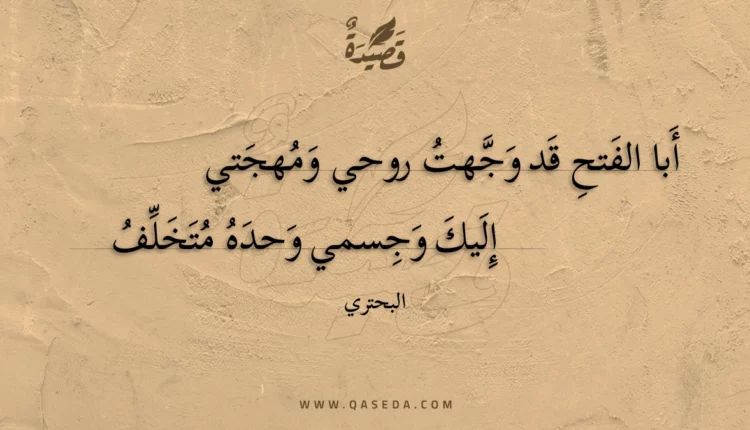 قَصِيدَةٌ
أَبا الفَتحِ قَد وَجَّهتُ روحي وَمُهجَتي
إِلَيكَ وَجِسمي وَحدَهُ مُتَخَلِّفُ
البحتري
WWW.QASEDA.COM